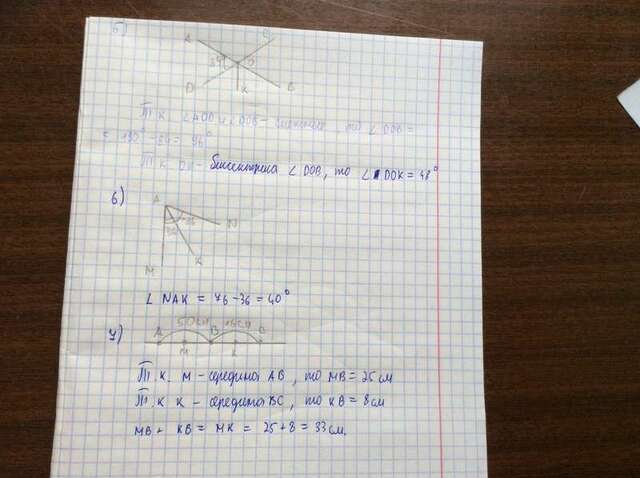 5)
A B
84°
D K C
Т.к. ∠AOD и ∠DOB - смежные, то ∠DOB =
= 180° - 84 = 96°
Т.к. OK - биссектриса ∠DOB, то ∠DOK = 48°
6)
A
36
N
K
M
∠NAK = 76-36 = 40°
7)
50см 16см
A B C
M K
Т.к. M - середина AB, то MB = 25 см
Т.к K - середина BC, то KB = 8 см
MB + KB = MK = 25+8 = 33 см.